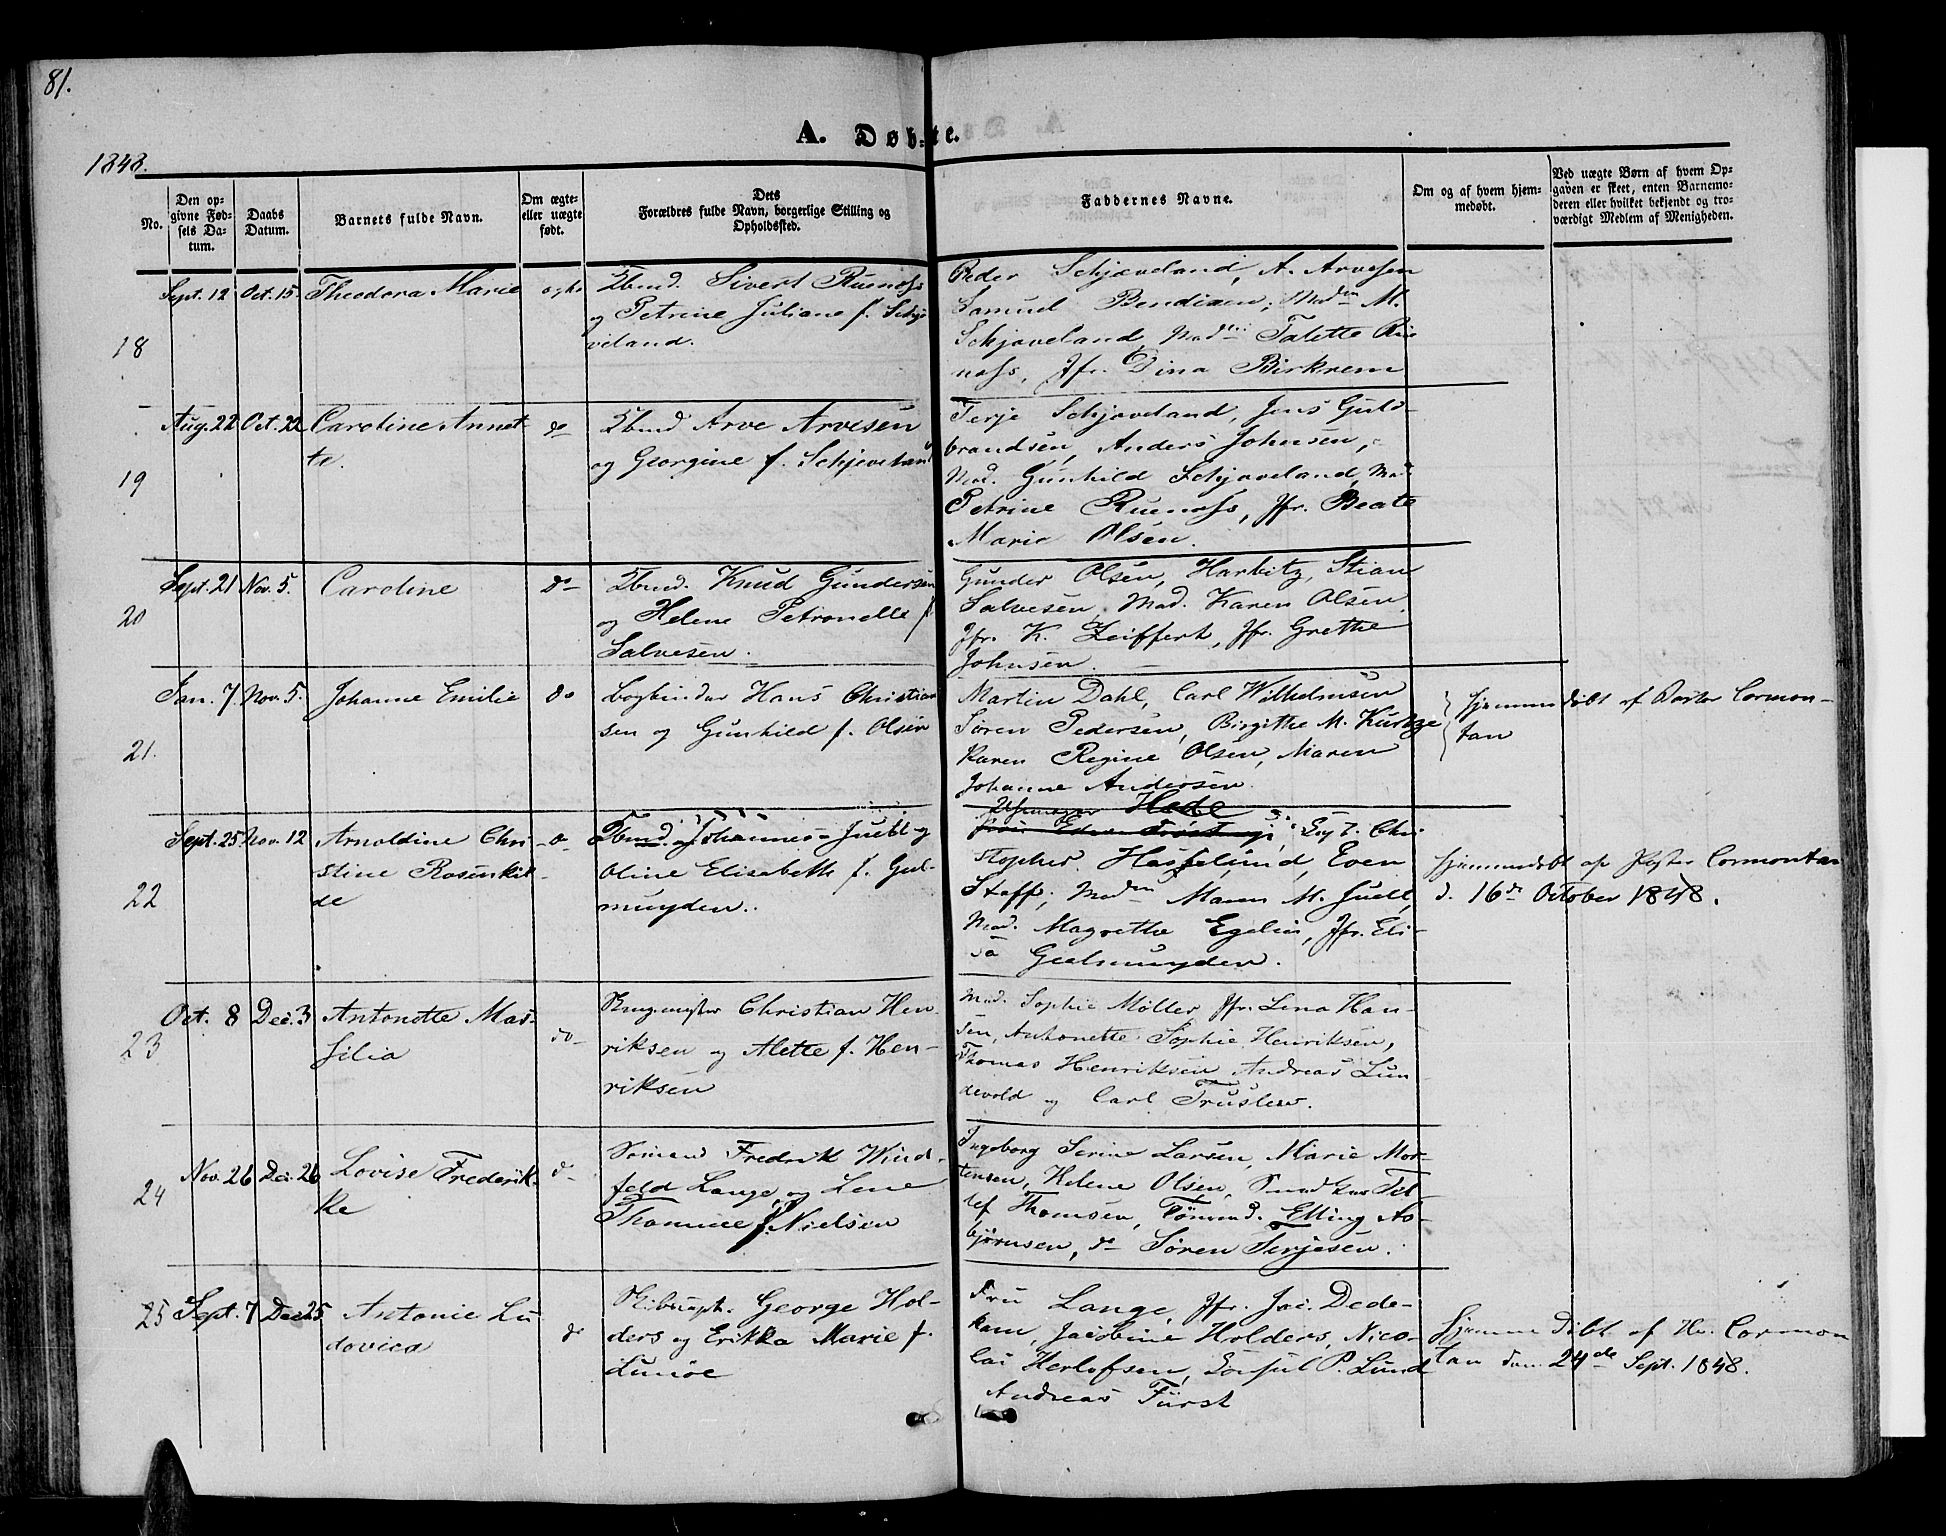 81.
A. Døbte.
1848.
No.
Den opgivne Fødsels Datum.
Daabs Datum.
Barnets fulde Navn.
Om ægte- eller uægte født.
Dets Forældres fulde Navn, borgerlige Stilling og Opholdssted.
Faddernes Navne.
Om og af hvem hjemmedøbt.
Ved uægte Børn af hvem Opgaven er skeet, enten Barnemoderen eller hvilket bekjendt og troværdigt Medlem af Menigheden.
18
Sept. 12 Oct. 15. Theodora Marie
Sivert Ruenæss
og Petrine Juliane f. Schjø
veland.
Peder Schjøveland, A. Arvesen
Samuel Bendixen, Madm M.
Schjøveland, Madm Talette Rue
næss, Jfr. Dina Birkrem
19
Aug. 22 Oct. 22 Caroline Annet
te.
do
Arve Arvesen
og Georgine f. Schjøveland
Terje Schjøveland, Jens Guld-
brandsen, Anders Johnsen,
Mad. Gunhild Schjøveland, Mad.
Petrine Ruenæss, Jfr. Beate
Marie Olsen.
20
Sept. 21 Nov. 5. Caroline
do
Knud Gundersen
og Helene Petronelle f.
Salvesen.
Gunder Olsen, Harbitz, Stian
Salvesen, Mad. Karen Olsen,
Jfr. K. Zeiffert, Jfr. Grethe
Johnsen.
21.
Jan. 7. Nov. 5. Johanne Emilie
do
Bogbinder Hans Christian
sen og Gunhild f. Olsen
Martin Dahl, Carl Wilhelmsen
Søren Pedersen, Birgithe M.
Karen Regine Olsen, Maren
Johanne Andersen.
Hjemmedøbt af Pastor Cormon-
tan
22
Sept. 25 Nov. 12 Arnoldine Chri-
stine Rosenkil-
de
do
Johannes Juell og
Oline Elisabeth f. Gul-
muyden.
Hede
Chri-
stopher Hasselund, Even
Staff, Madm Maren M. Juell,
Mad. Magrethe Egelie, Jfr. Eli-
sa Gulmuyden.
Hjemmedøbt af Pastor Cormontan
d. 16de October 1848.
23
Oct. 8 Dec. 3 Antonette Mas-
silia
do
Christian Hen-
riksen og Alette f. Hen-
riksen
Mad. Sophie Møller, Jfr. Lena Han-
sen, Anthonette Sophie Henriksen,
Thomas Henriksen Andreas Lun
devold og Carl Truslew.
24
Nov. 26 Dec. 26 Lovise Frederik-
ke
do
Sømand Fredrik Wind-
feld Lange, og Lene
Thomine f. Nielsen
Ingeborg Serine Larsen, Marie Mor-
tensen, Helene Olsen, Tel-
lef Thomsen, Tømmd. Elling As-
bjørnsen, do Søren Terjesen.
25
Sept. 7 Dec. 25 Antonie Lu
dovica
do
George Hol-
ders og Erikka Marie f.
Lunøe
Fru Lange, Jfr. Jac. Dede-
kam, Jacobine Holders, Nico-
lai Herlofsen, Consul P. Lund
Andreas Fürst
Hjemmedøbt af Hr. Cormon
tan den 24de Sept. 1848.